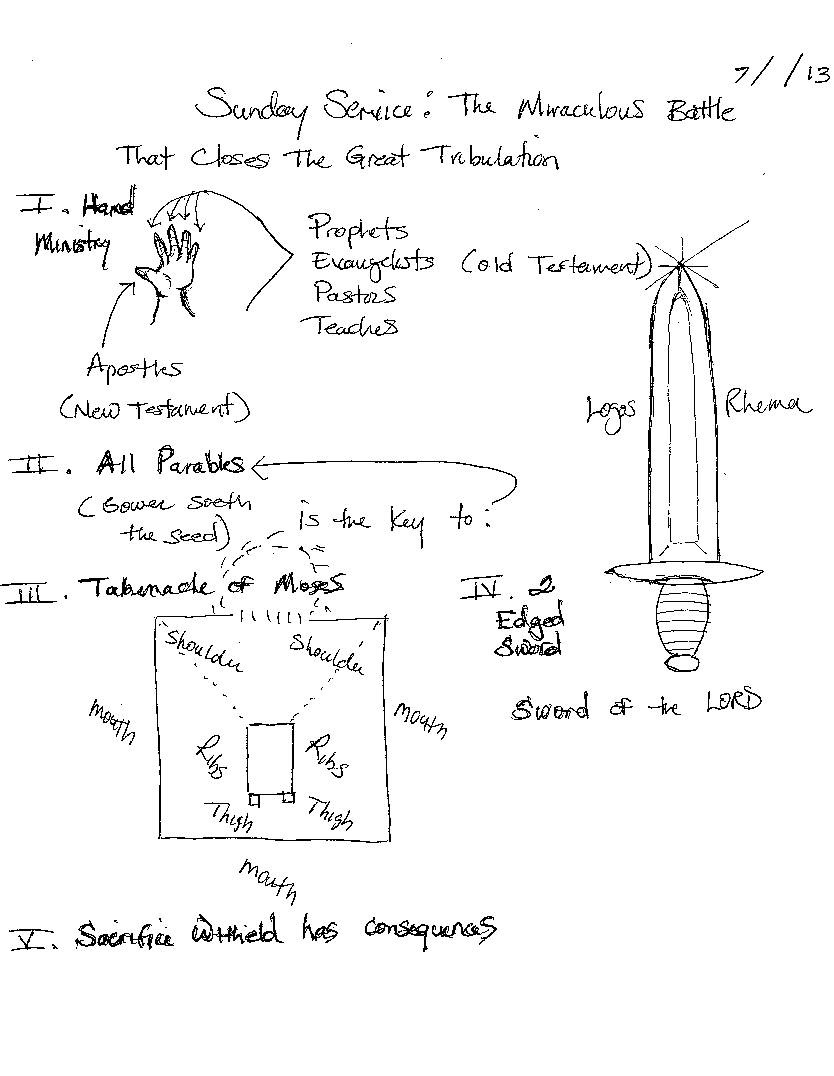 7/ /13
Sunday Service: The Miraculous Battle
That Closes The Great Tribulation
I. Hand
Ministry
Prophets
Evangelists (Old Testament)
Pastors
Teaches
Apostles
(New Testament)
Logos
Rhema
II. All Parables
(Sower soeth
the seed)
is the key to:
III. Tabernacle of Moses
IV. 2
Edged
Sword
Shoulder
Shoulder
Mouth
Mouth
Sword of the LORD
Ribs
Ribs
Thigh
Thigh
Mouth
V. Sacrifice Withield has consequences